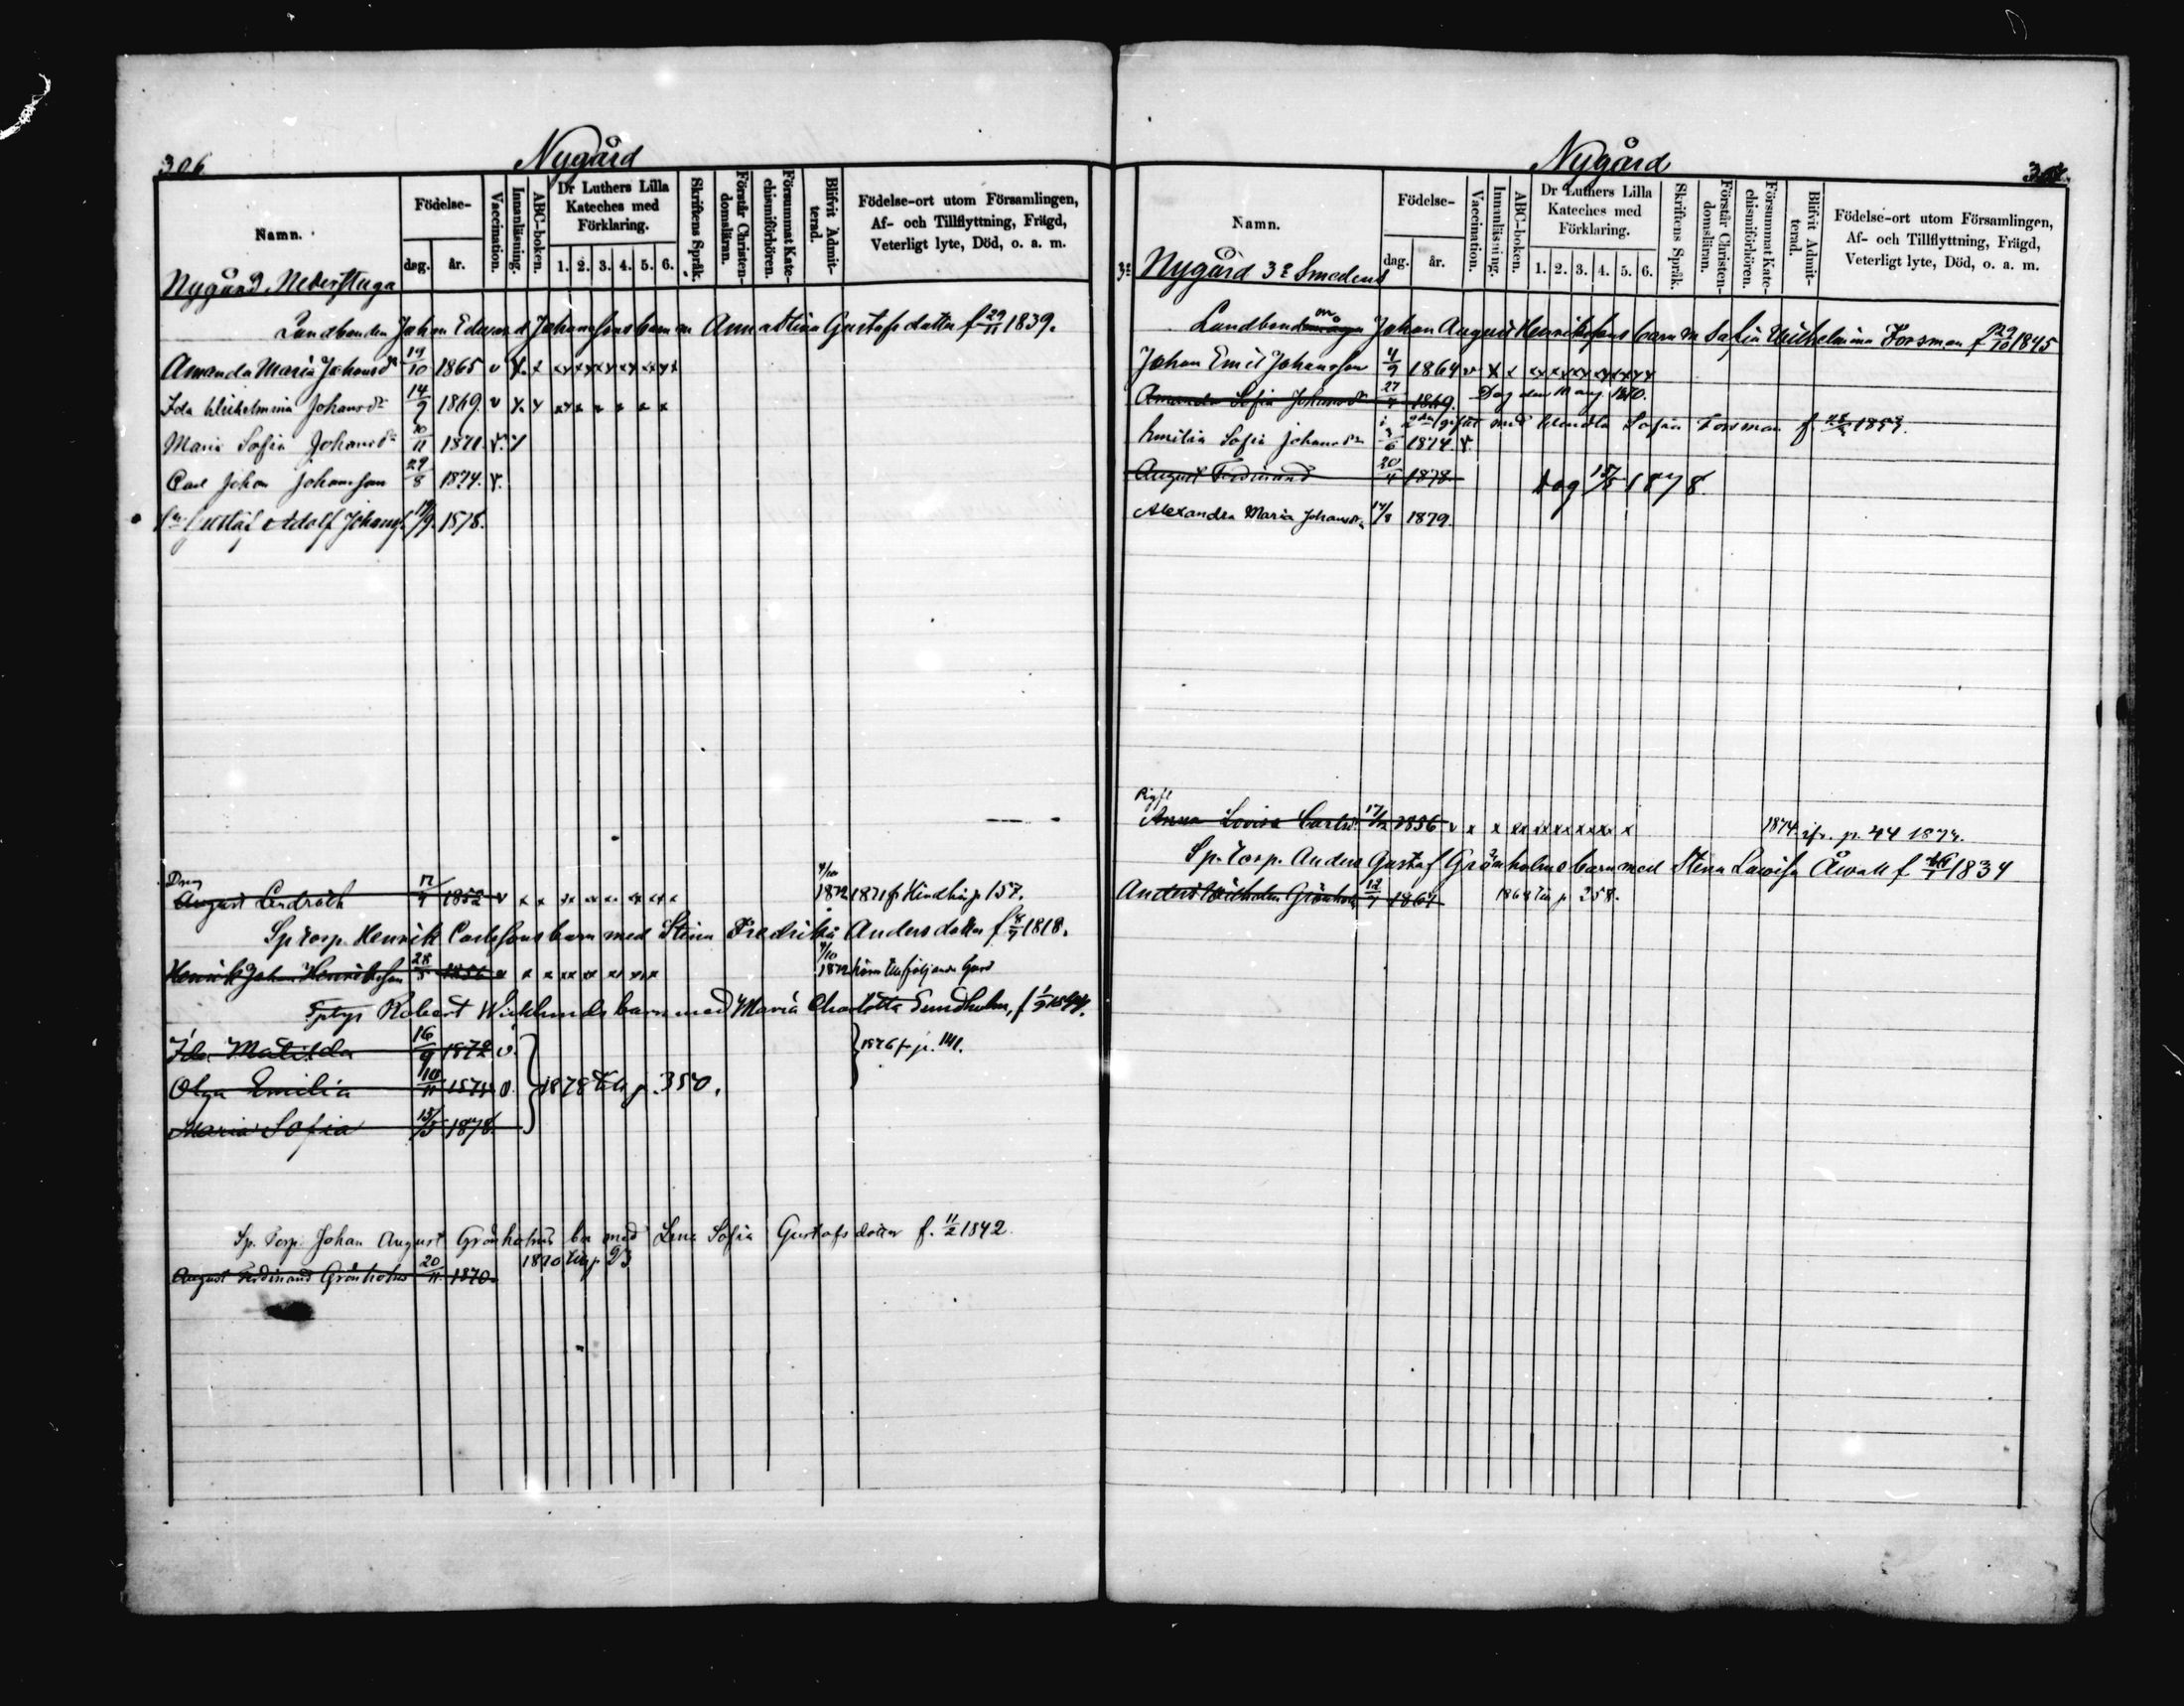 306
Nygård
Namn.
Födelse-
dag.
år.
Vaccination.
Innanläsning.
ABC-boken.
Dr Luthers Lilla Kateches med Förklaring.
1. 2. 3. 4. 5. 6.
Skriftens Språk.
Förstår Christendomsläran.
Försummat Katechismiförhören.
Blifvit Admitterad.
Födelse-ort utom Församlingen,
Af- och Tillflyttning, Frägd,
Veterligt lyte, Död, o. a. m.
Nygård Nederstuga
Landbonden Johan Edward Johanssons barn m Anna Stina Gustafsdotter f 29/11 1839.
Amanda Maria Johansdr 19/10 1865 v x x xx xx xx xx xx xx
Ida Wilhelmina Johansdr 14/9 1869. v x x xx x x x x x
Maria Sofia Johansdr 10/11 1871. v.
Carl Johan Johansson 29/8 1874. v.
Gustaf Adolf Johanss. 1878.
Dräng
August Lindroth 1852 v x x 1872 1871 fr p 157.
Sp torp. Henrik Carlssons barn med Stina Fredrika Andersdotter f 8/7 1818.
Henrik Johan Henriksson 28/5 1856 v x x xx 1872 följande Gård
Robert Wicklunds barn med Maria Charlotta Sundholm, f
Ida Matilda 16/9 1872 v. 1876 fr p. 141.
Olga Emilia 10/11 1874 v. 1878 till p. 350.
Maria Sofia 15/5 1878.
Sp. Torp. Johan August Grönholms ba med Lena Sofia Gustafsdotter f. 11/2 1842.
August Ferdinand Grönholm 20/11 1870 1870 till p 93
Nygård
Namn.
Födelse-
dag.
år.
Vaccination.
Innanläsning.
ABC-boken.
Dr Luthers Lilla Kateches med Förklaring.
1. 2. 3. 4. 5. 6.
Skriftens Språk.
Förstår Christendomsläran.
Försummat Katechismiförhören.
Blifvit Admitterad.
Födelse-ort utom Församlingen,
Af- och Tillflyttning, Frägd,
Veterligt lyte, Död, o. a. m.
Nygård 3e Smedens
Landbonden Johan August Henrikssons barn m Sofia Wilhelmina Forsman f 29/10 1845
Johan Emil Johansson 4/9 1864 v x x xx xx xx xx xx xx
Amanda Sofia Johansdr 27/7 1869. Dog den 10 aug. 1870.
i 2dra giftet med Wendla Sofia Forsman f 1857.
Emilia Sofia Johansdr 3/6 1874. v.
August Ferdinand 20/4 1878. Dog 15/5 1878.
Alexandra Maria Johansdr 17/8 1879.
Pigf.
Anna Lovisa Carlsd. 17/12 1856 v x x xx xx xx xx xx x 1874. p. 44 1874.
Sp. torp. Anders Gustaf Grönholms barn med Stina Lovisa Åwall f 1834
Anders Wilhelm Grönholm 12/7 1864 1868 till p 258.